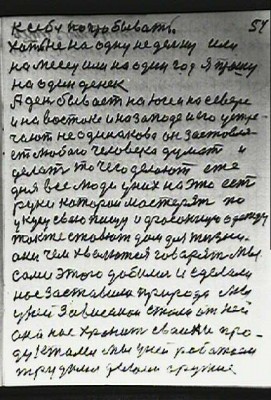 к себу погробывать. 54
хоть не на одну неделку или
на месец или на один год я прошу
на один денек
А ден бывает на юге и на севере
и на востоке и на западе и его устре-
чают не одинаково он заставля-
ет любого человека думать и
делать то чего делают еже
дня все люди у них на это есть
руки которой мастерят по
вкусу свою пищу и драгоценную одежду
также ставют дом для жизни.
они чем хвалются говарят мы
сами этого добился и сделали
нас заставила природа мы
у ней зависимой стали от ней
она нас хронит своих и про-
дуктами мы у ней работаем
трудимся делаем грузкие